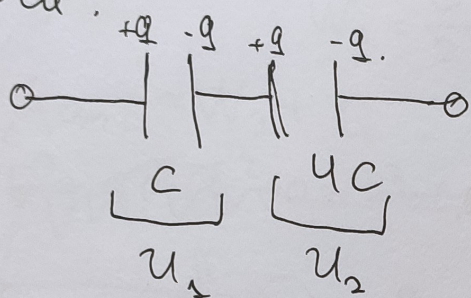 +q -q +q -q.
C 4C
U₁ U₂